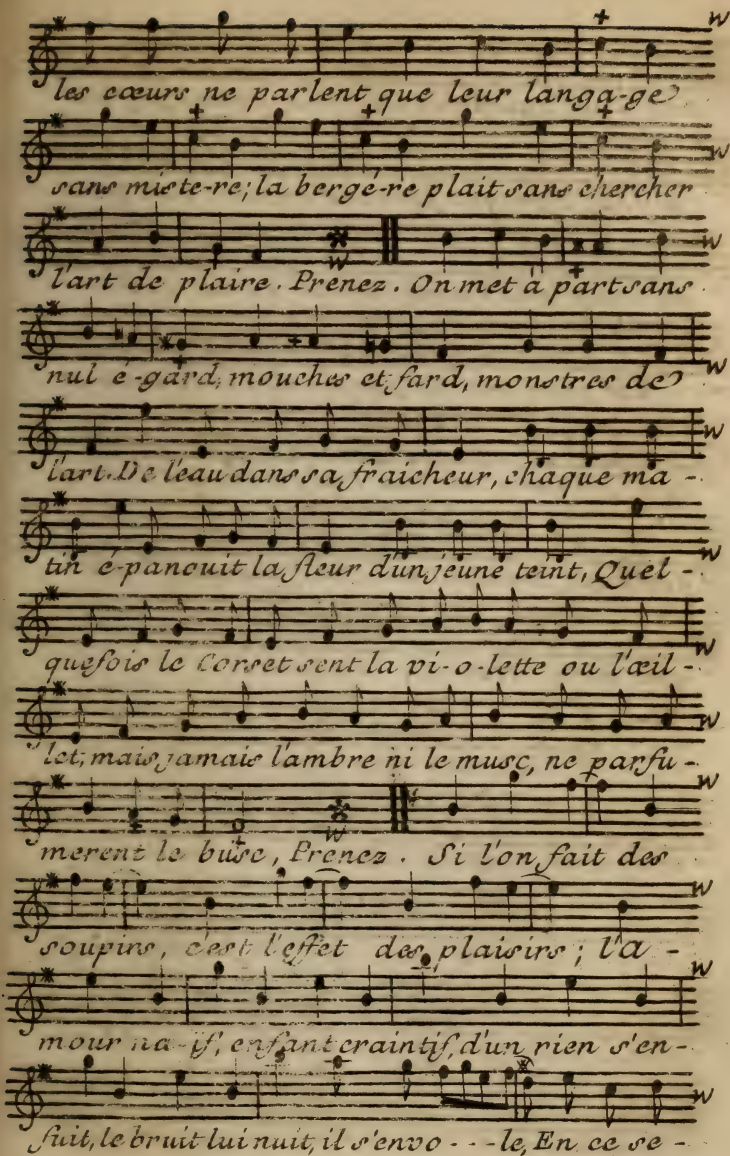 les cœurs ne parlent que leur langa-ge
sans miste-re; la bergé-re plait sans chercher
l'art de plaire. Prenez. On met à part sans
nul é-gard, mouches et fard, monstres de
l'art. De l'eau dans sa fraicheur, chaque ma-
tin é-panouit la fleur d'un jeune teint, Quel-
quefois le Corset sent la vi-o-lette ou l'œil-
let; mais jamais l'ambre ni le musc, ne parfu-
merent le busc, Prenez. Si l'on fait des
soupirs, c'est l'effet des plaisirs; l'a-
mour na-if, enfant craintif, d'un rien s'en-
fuit, le bruit lui nuit, il s'envo---le, En ce se-